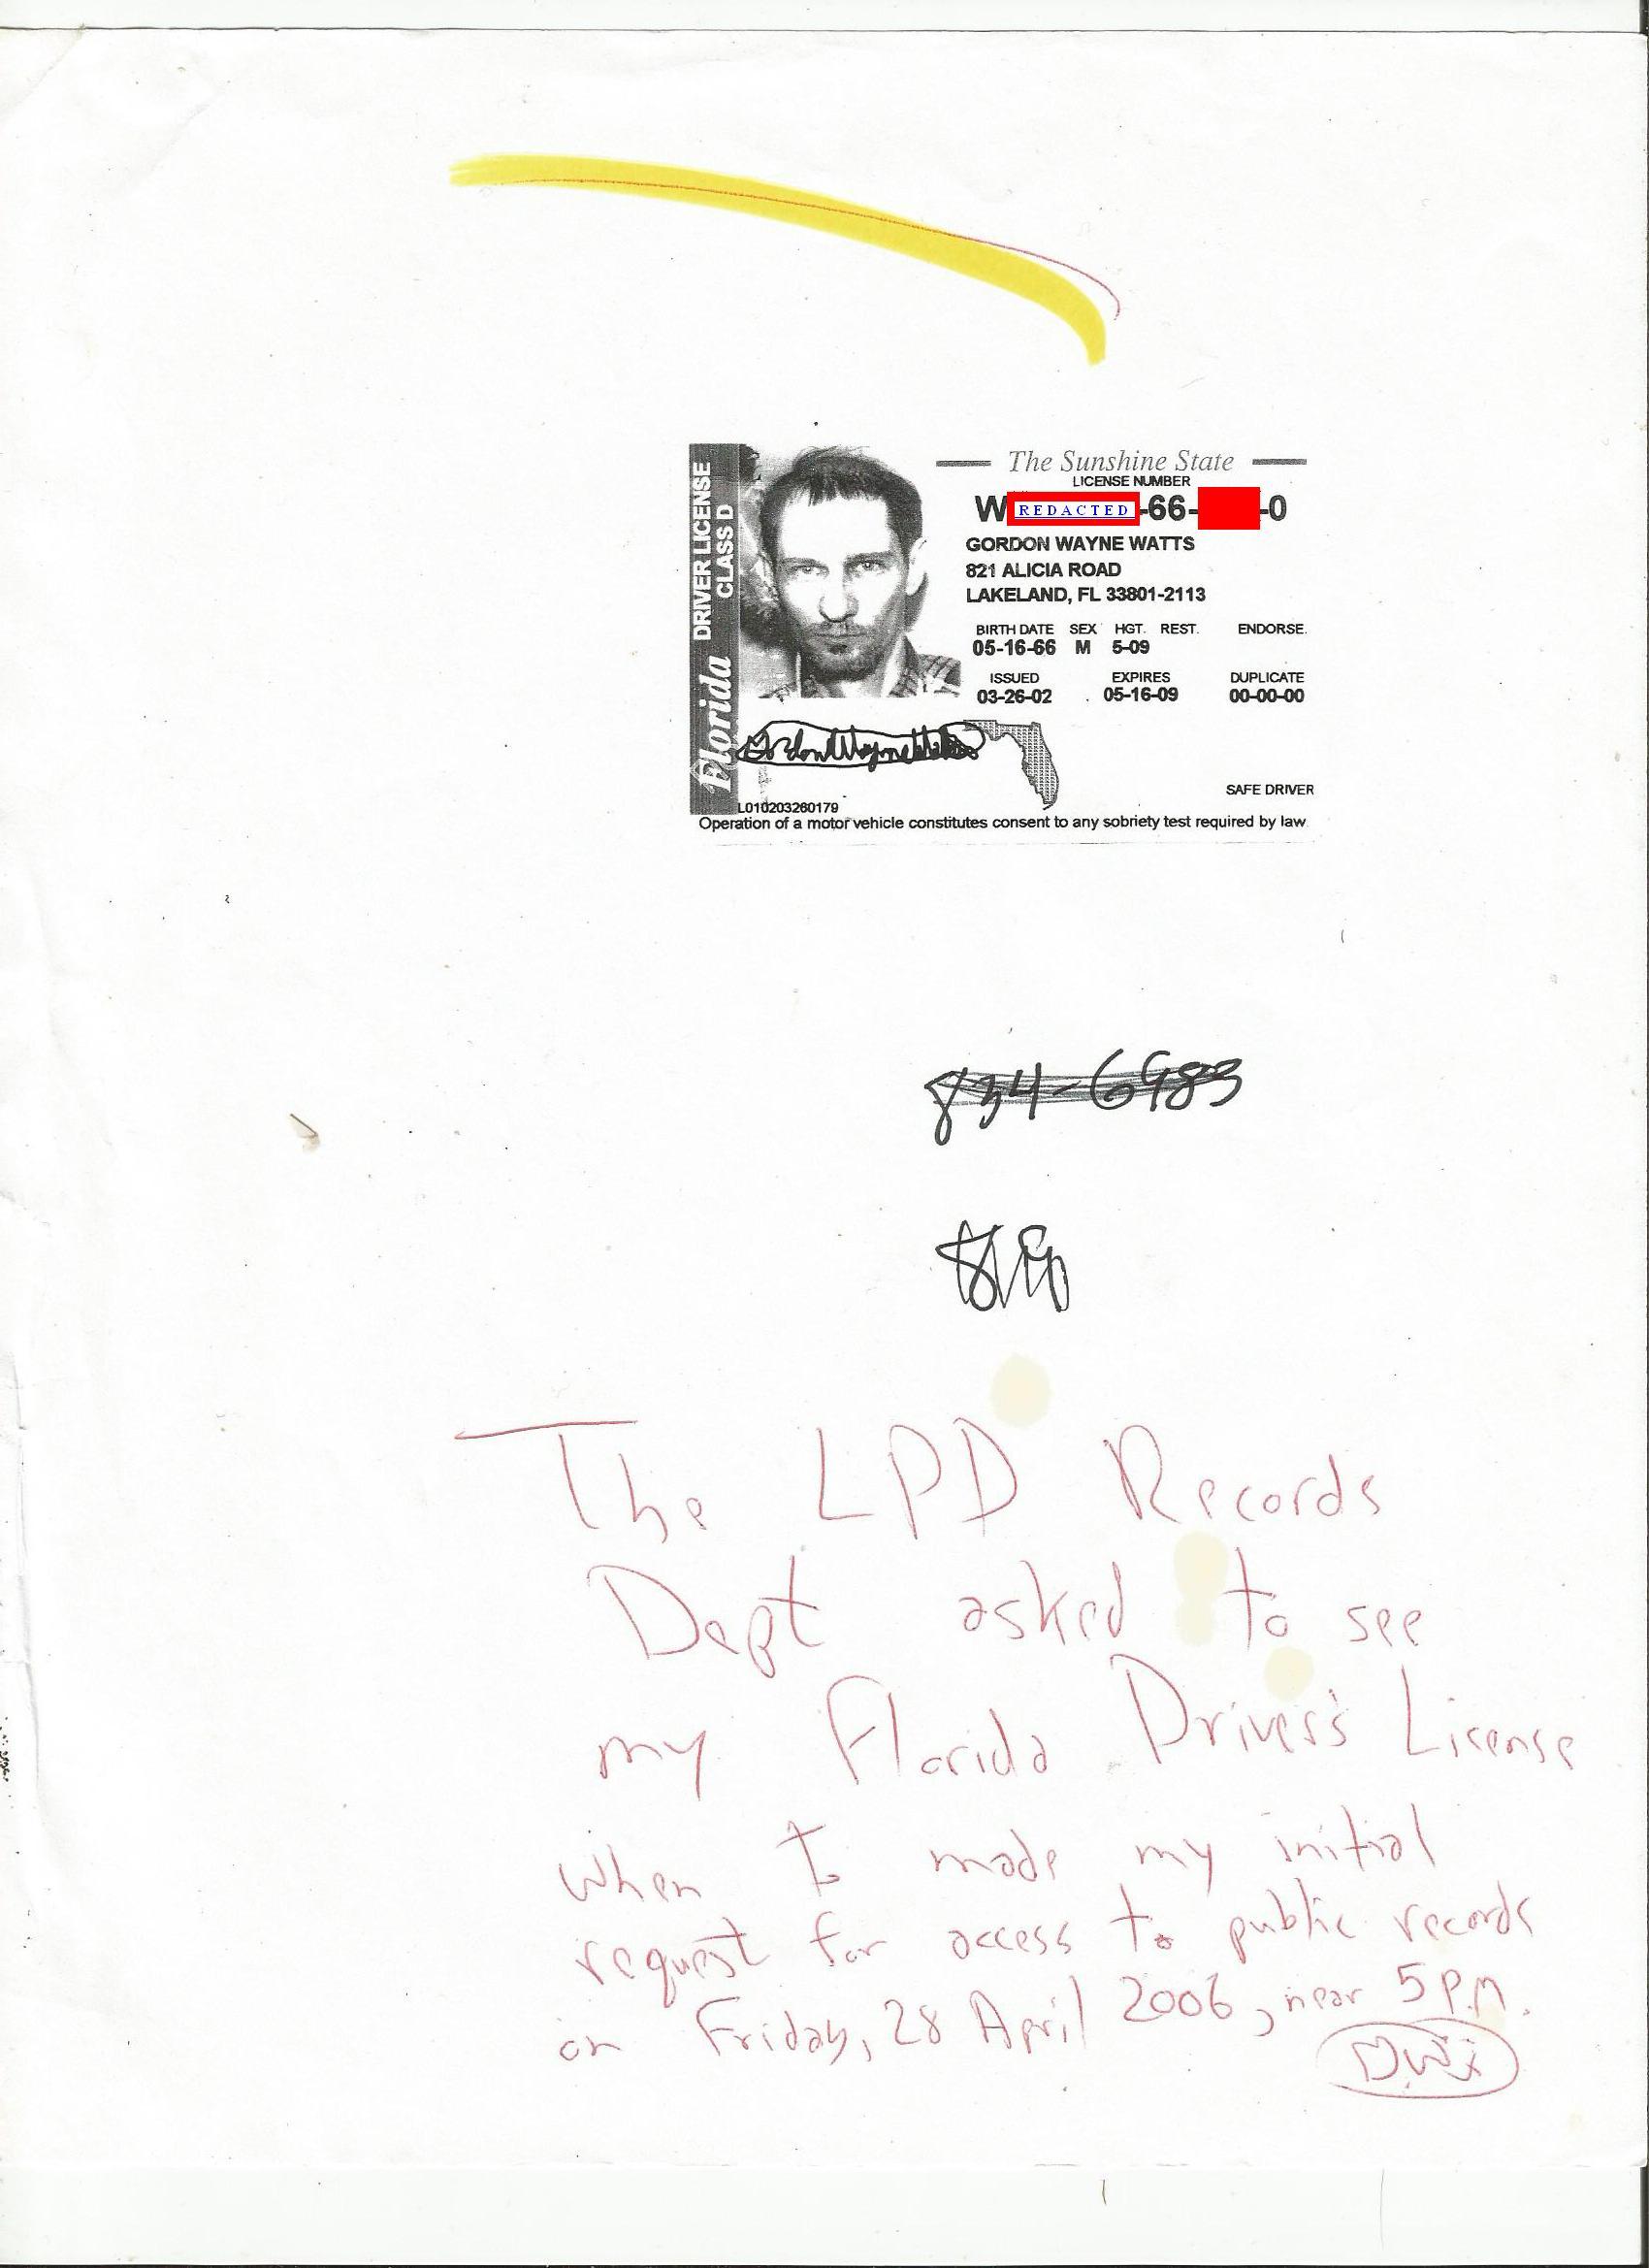 The Sunshine State
LICENSE NUMBER
W REDACTED -66- -0
GORDON WAYNE WATTS
821 ALICIA ROAD
LAKELAND, FL 33801-2113
BIRTH DATE SEX HGT. REST. ENDORSE.
05-16-66 M 5-09
ISSUED EXPIRES DUPLICATE
03-26-02 05-16-09 00-00-00
Florida DRIVER LICENSE
CLASS D
Gordon Wayne Watts
SAFE DRIVER
L010203260179
Operation of a motor vehicle constitutes consent to any sobriety test required by law
834-6983
The LPD Records
Dept asked to see
my Florida Driver's License
when I made my initial
request for access to public records
on Friday, 28 April 2006, near 5 P.M.